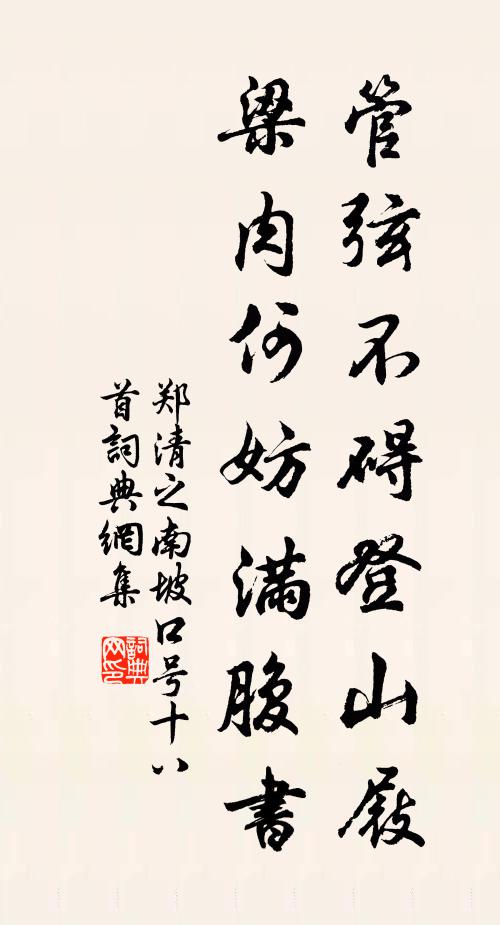 管弦不碍登山屐
梁肉何妨满腹書
郑清之南坡口号十八
首詞典網集
詞典
网印